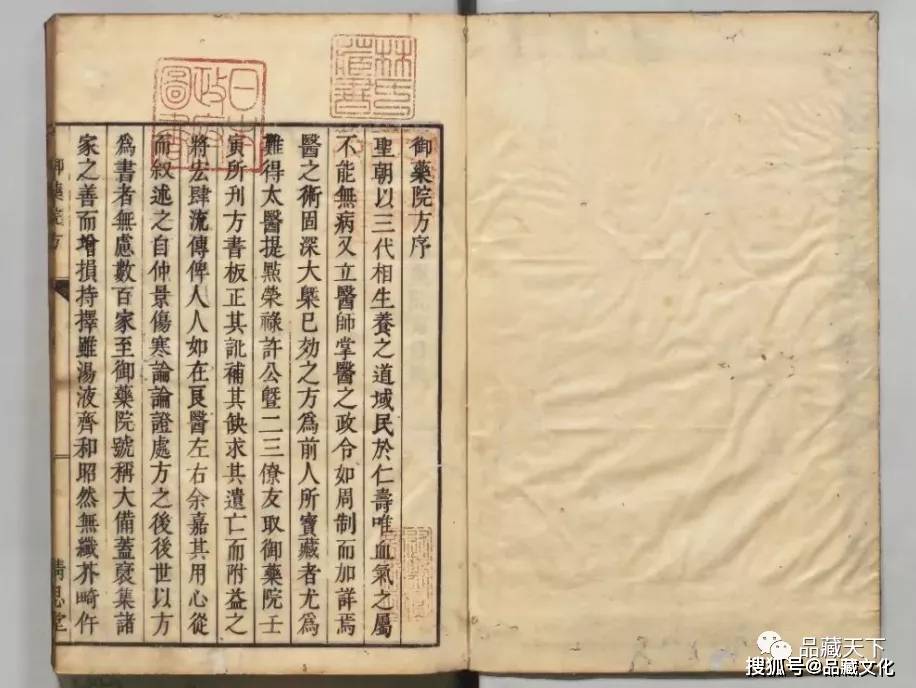 御藥院方序
聖朝以三代相生養之道域民於仁壽唯血氣之屬
不能無病又立醫師掌醫之政令如周制而加詳焉
醫之術固深大槩已効之方爲前人所寶藏者尤爲
難得太醫提㸃榮祿許公曁二三僚友取御藥院壬
寅所刊方書板正其訛補其缺求其遺亡而附益之
將宏肆流傳俾人人如在良醫左右余嘉其用心從
而叙述之自仲景傷寒論論證處方之後後世以方
爲書者無慮數百家至御藥院號稱大備蓋裒集諸
家之善而增損持擇雖湯液齊和昭然無纖芥畸仵
御藥院方
精思堂
日本政府圖書
品藏天下
搜狐号@品藏文化